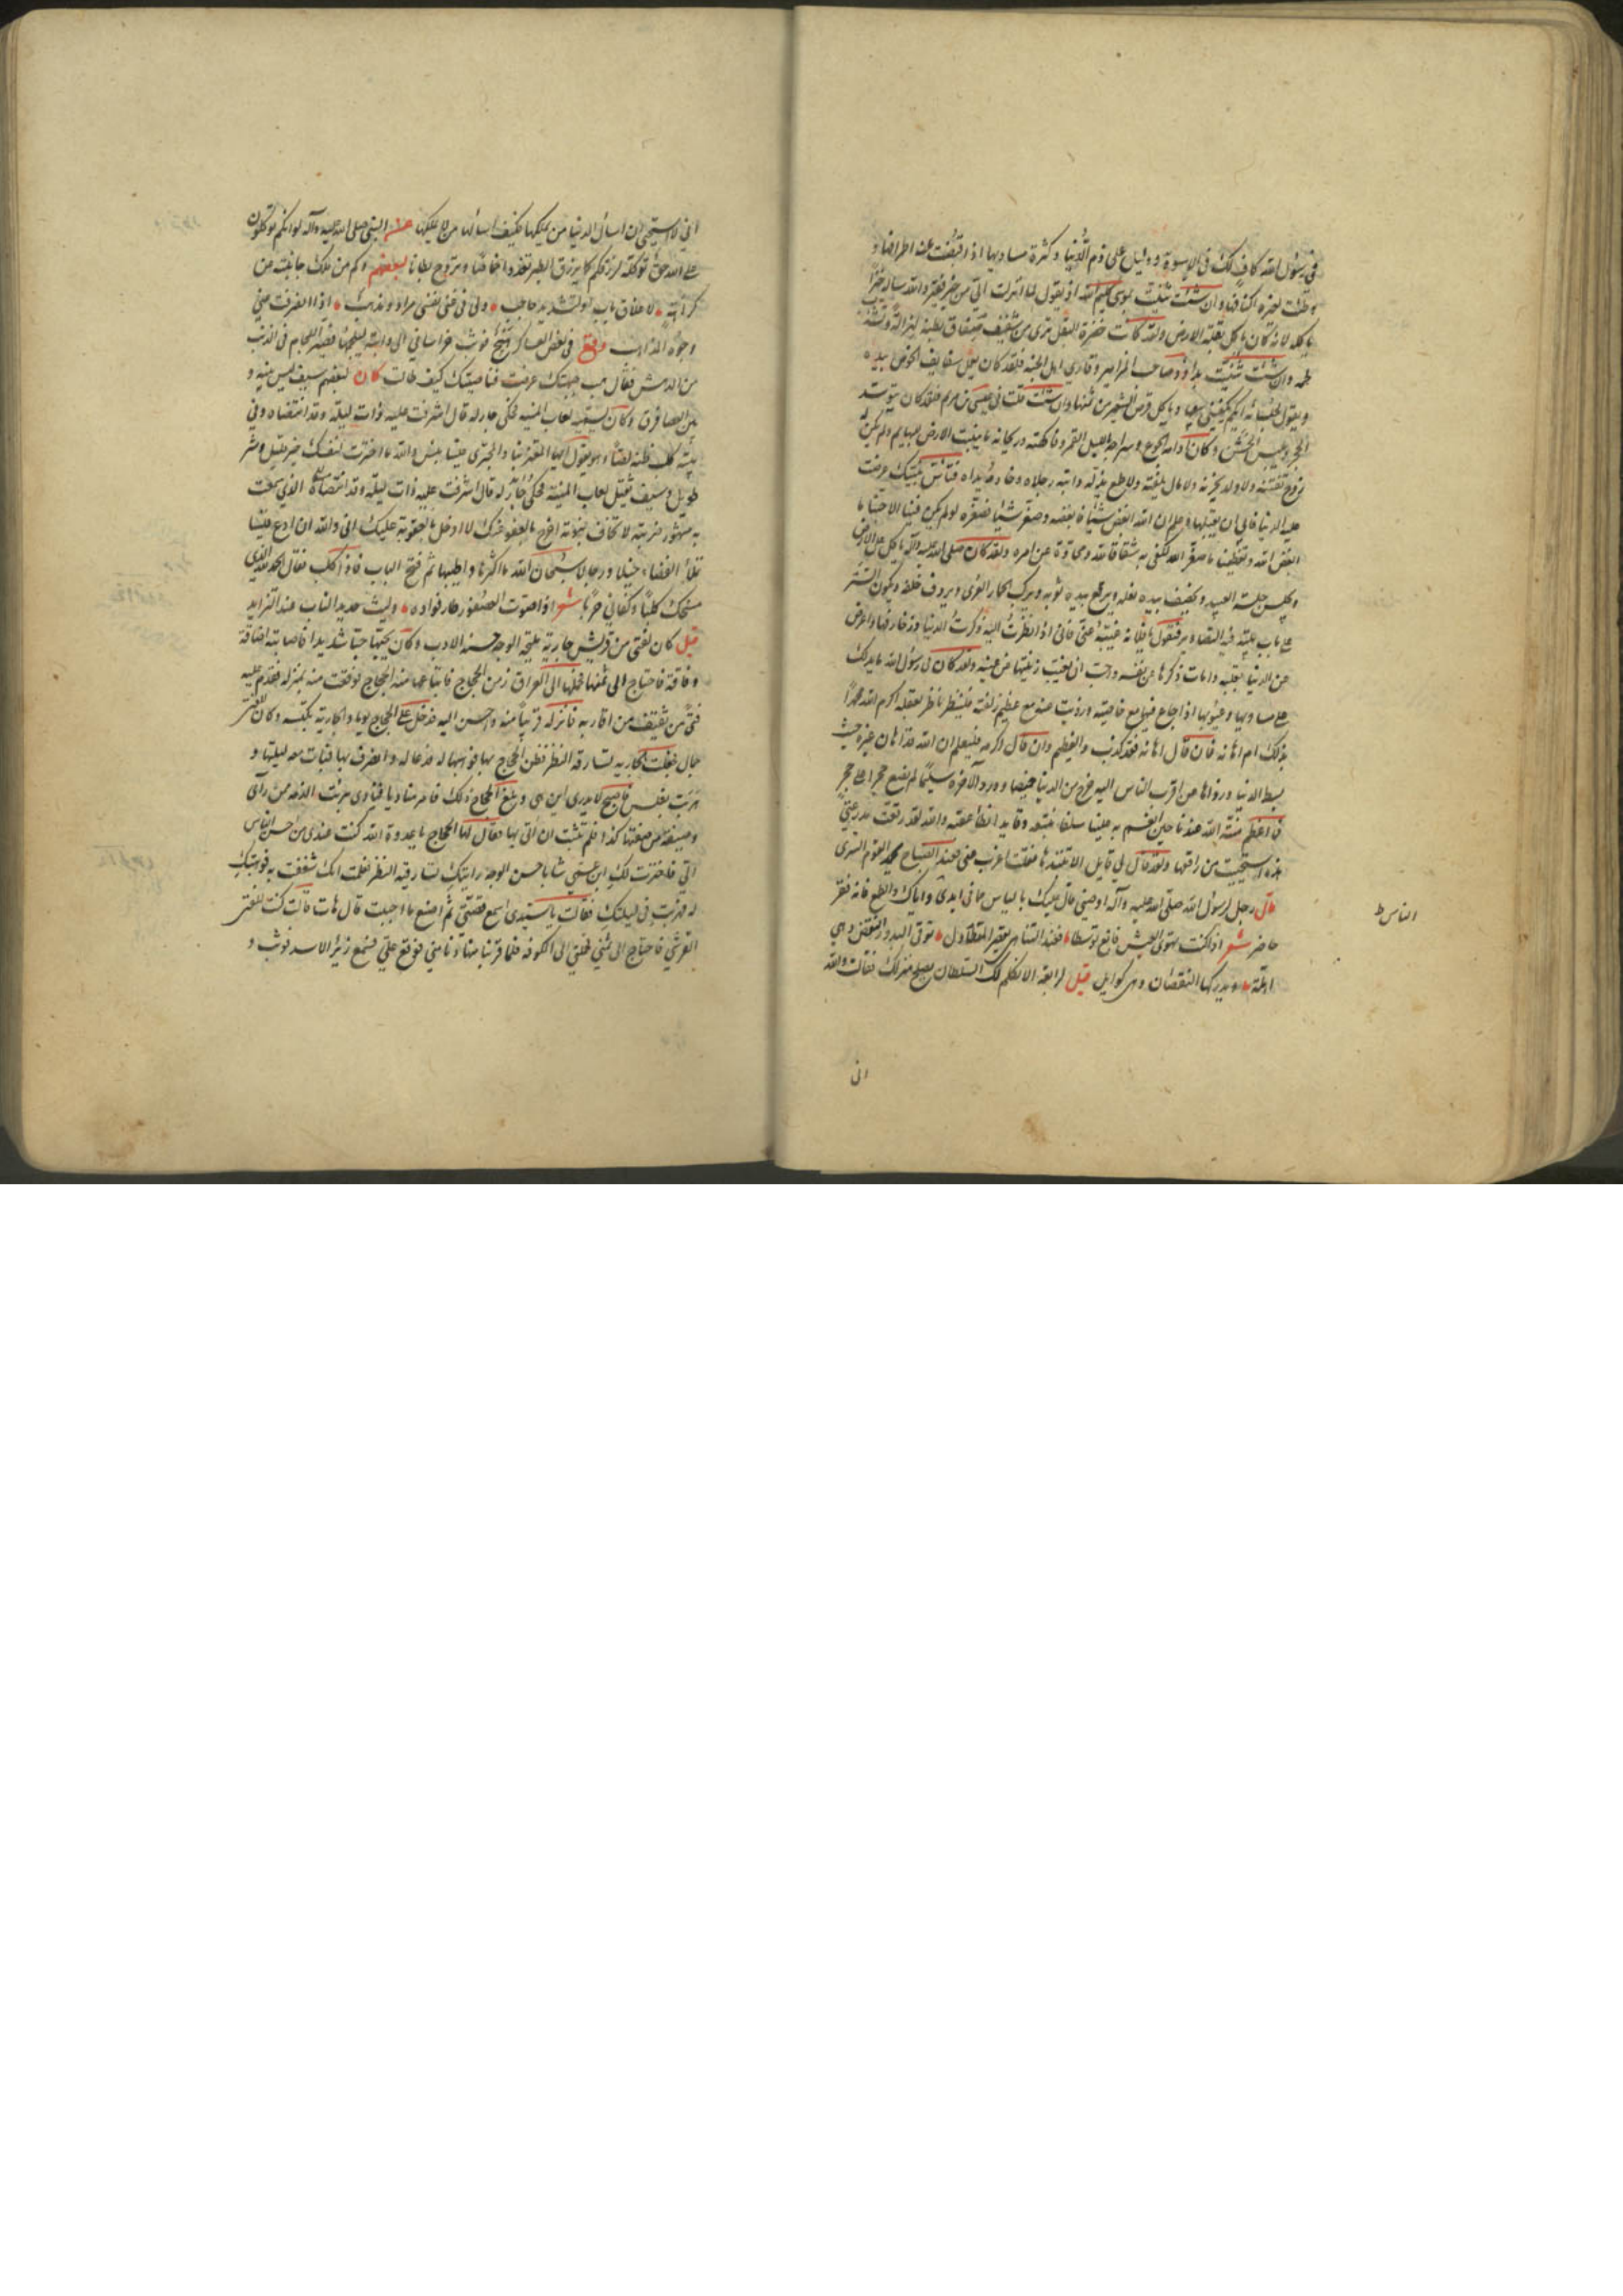 في رسول الله كاف لك في الاسوة ودليل على ذم الدنيا وكثرة مساويها اذ اقبضت عنه اطرافها و
وطئت لغيره اكنافها وان شئت ثنيت بموسى كليم الله اذ يقول لما انزلت الي من خير فقير والله ساله خبزا
ياكله لانه كان ياكل بقلة الارض ولقد كانت خضرة البقل ترى من شفيف صفاق بطنه لهزاله وتشذب
لحمه وان شئت ثلثت بداود صاحب المزامير وقاري اهل الجنة فلقد كان يعمل سفايف الخوص بيده
ويقول لجلسائه ايكم يكفيني بيعها وياكل قرص الشعير من ثمنها وان شئت قلت في عيسى بن مريم فلقد كان يتوسد
الحجر ويلبس الخشن وكان ادامه الجوع وسراجه بالليل القمر وفاكهته وريحانه ما ينبت الارض للبهايم ولم يكن له
زوج تفتنه ولا ولد يحزنه ولا مال يلفته ولا طمع يذله دابته رجلاه وخادمه يداه فتاس بنبيك عرضت
عليه الدنيا فابى ان يقبلها وعلم ان الله ابغض شيئا فابغضه وصغر شيئا فصغره لو لم يكن فينا الا حبنا ما
ابغض الله وتعظيمنا ما صغر الله لكفى به شقاقا لله ومحادة عن امره ولقد كان صلى الله عليه وآله ياكل على الارض
ويجلس جلسة العبيد ويخصف بيده نعله ويرقع بيده ثوبه ويركب الحمار العرى ويردف خلفه ويكون الستر
على باب بيته فيه التصاوير فيقول يا فلانة غيبيه عني فاني اذا نظرت اليه ذكرت الدنيا وزخارفها واعرض
عن الدنيا بقلبه وامات ذكرها من نفسه واحب ان يغيب زينتها عن عينه ولقد كان في رسول الله ما يدلك
على مساويها وعيوبها اذ جاع فيها مع خاصته وزويت عنه مع عظيم زلفته فلينظر ناظر بعقله اكرم الله محمدا
بذلك ام اهانه فان قال اهانه فقد كذب والعظيم وان قال اكرمه فليعلم ان الله قد اهان غيره حيث
بسط الدنيا وزواها عن اقرب الناس اليه خرج من الدنيا خميصا وورد الآخرة سليما لم يضع حجرا على حجر
فما اعظم منة الله عندنا حين انعم به علينا سلفا نتبعه وقايدا نطا عقبه والله لقد رقعت مدرعتي
هذه استحييت من راقعها ولقد قال لي قايل الا تنبذها فقلت اعزب عني فعند الصباح يحمد القوم السرى
قال رجل لرسول الله صلى الله عليه وآله اوصني قال عليك بالياس مما في ايدي واياك والطمع فانه فقر
الناس ط
حاضر شعر اذا كنت تهوى العيش فابغ توسطا فعند التناهي يقصر المتطاول توقى البدور النقص وهي
اهلة ويدركها النقصان وهي كوامل قيل لرابعة الا نكلم لك السلطان يصلح منزلك فقالت والله
اني
اني لاستحيي ان اسال الدنيا من يملكها فكيف اسالها من لا يملكها عن النبي صلى الله عليه وآله لو انكم توكلون
على الله حق توكله لرزقكم كما يرزق الطير تغدوا خماصا وتروح بطانا لبعضهم وكم من ملك جانبت من
كراهة لاغلاق باب او لتشديد حاجب ولي في غنى نفسي مراد ومذهب اذا انصرفت عني
وجوه المذاهب وقع في بعض العساكر هيج فوثب خراساني الى دابته ليلجمها فصير اللجام في الذنب
من الدهش فقال هب جبهتك عرضت فناصيتك كيف طالت كان لبعضهم سيف ليس بينه و
بين العصا فرق وكان يسميه لعاب المنية فحكى جار له قال اشرفت عليه ذات ليلة وقد انتضاه وفي
بيته كلب ظنه لصا وهو يقول ايها المغتر بنا والمجتري علينا بئس والله ما اخترت لنفسك خير قليل وشر
طويل وسيف ثقيل لعاب المنية فحكى جار له قال اشرفت عليه ذات ليلة وقد انتضاه الذي سمعت
به مشهور ضربته لا تخاف نبوته اخرج بالعفو عنك لا ادخل بالعقوبة عليك اني والله ان ادع قيسا
تملأ الفضاء خيلا ورجالا سبحان الله ما اكثرها واطيبها ثم فتح الباب فاذا كلب فقال الحمد لله الذي
مسخك كلبا وكفاني حربا شعر اذا صوت العصفور طار فواده وليث حديد الناب عند الثرايد
قيل كان لفتى من قريش جارية مليحة الوجه حسنة الادب وكان يحبها حبا شديدا فاصابته اضاقة
وفاقة فاحتاج الى ثمنها فحملها الى العراق زمن الحجاج فابتاعها منه الحجاج فوقعت منه بمنزلة فقدم عليه
فتى من ثقيف من اقاربه فانزله قريبا منه واحسن اليه فدخل على الحجاج يوما والجارية تكبسه وكان للفتى
جمال فجعلت الجارية تسارقه النظر ففطن الحجاج بها فوهبها له فدعا له وانصرف بها فباتت معه ليلتها و
هربت بغلس فاصبح لا يدري اين هي وبلغ الحجاج ذلك فامر مناديا فنادى برئت الذمة ممن رأى
وصيفة من صفتها كذا فلم تلبث ان اتي بها فقال لها الحجاج يا عدوة الله كنت عندي من احب الناس
الي فاخترت لك ابن عمي شابا حسن الوجه رايتك تسارقيه النظر فعلمت انك شغفت به فوهبتك
له فهربت في ليلتك فقالت يا سيدي اسمع قصتي ثم اصنع ما احببت قال هات قالت كنت للفتى
القرشي فاحتاج الى ثمني فحملني الى الكوفة فلما قربنا منها دنا مني فوقع علي فسمع زئير الاسد فوثب و